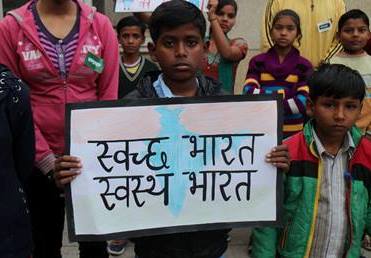 स्वच्छ भारत
स्वस्थ भारत